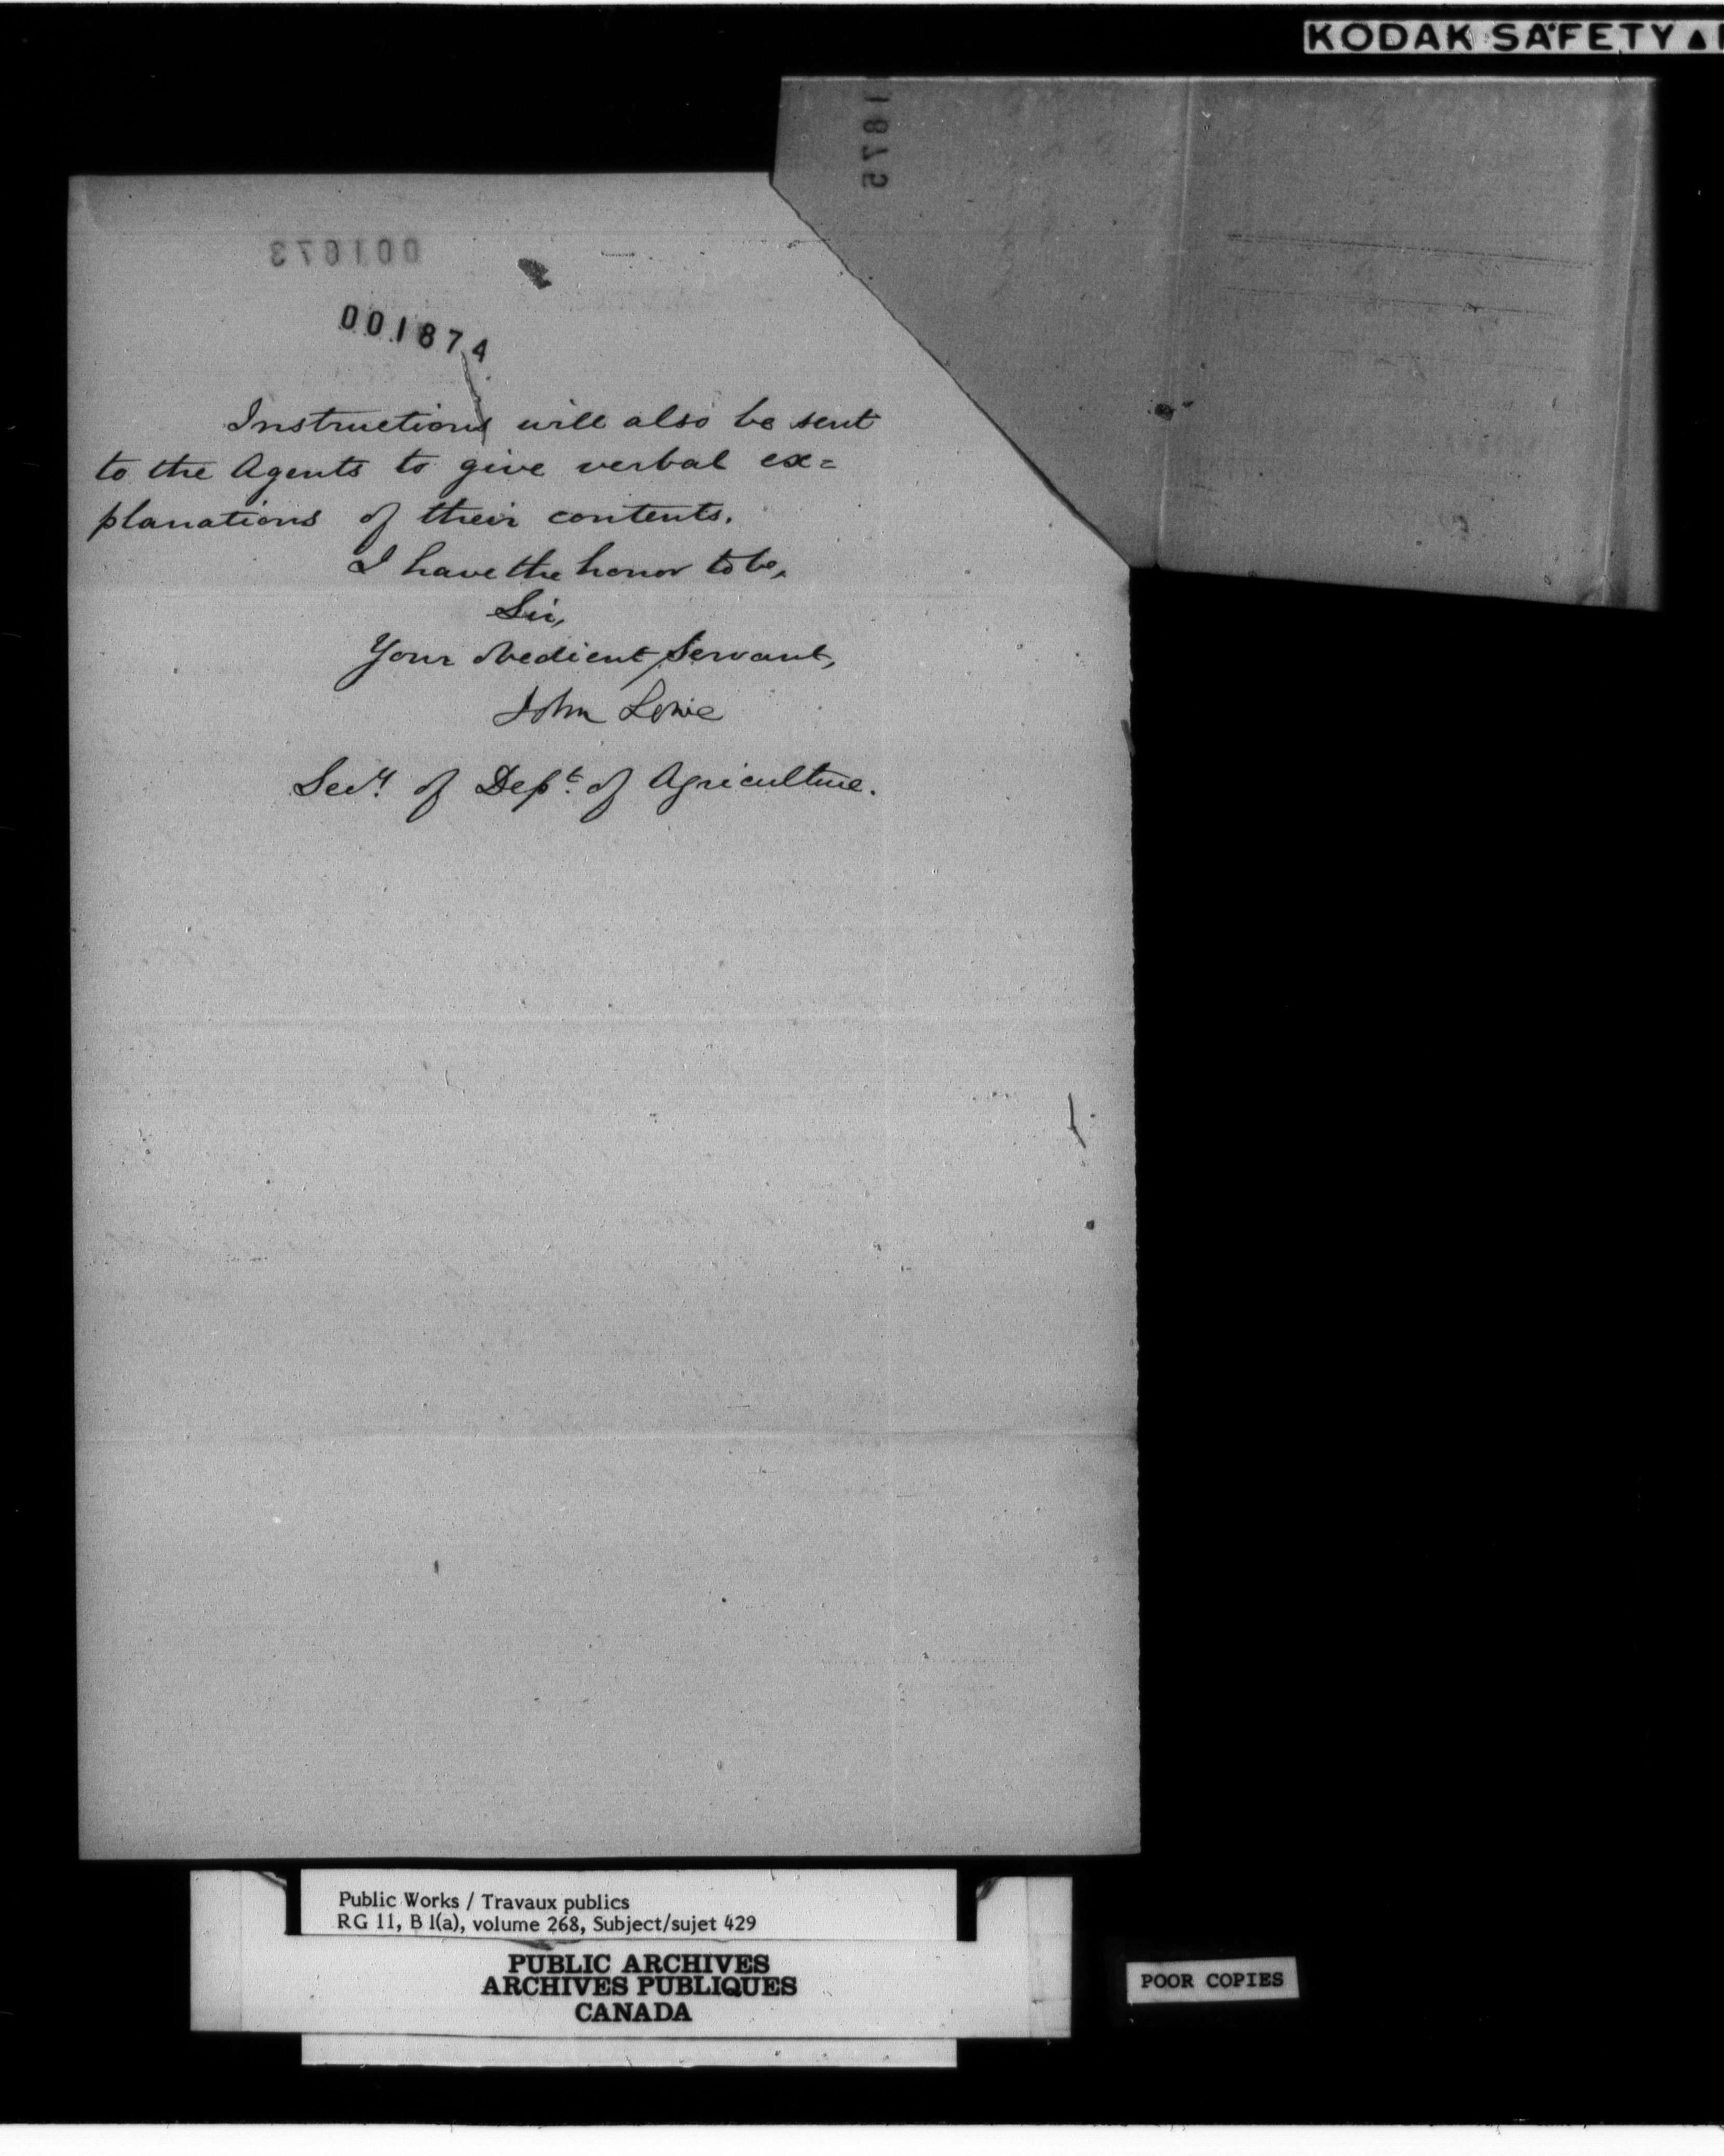 KODAK SAFETY
1875
001873
001874
Instructions will also be sent
to the Agents to give verbal ex=
planations of their contents.
I have the honor to be,
Sir,
Your obedient Servant,
John Lowe
Secy. of Dept. of Agriculture.
Public Works / Travaux publics
RG 11, B 1(a), volume 268, Subject/sujet 429
PUBLIC ARCHIVES
ARCHIVES PUBLIQUES
CANADA
POOR COPIES